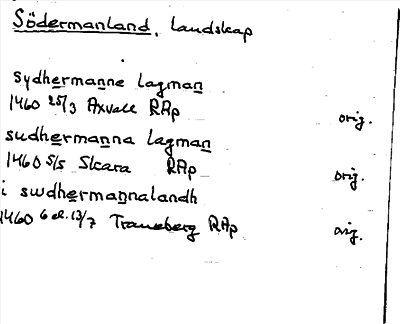 Södermanland, landskap
sydhermanne lagman
1460 25/3 Axvall RAp orig.
sudhermanna lagman
1460 5/5 Skara RAp orig.
i swdhermannalandh
1460 6 el. 13/7 Traneberg RAp orig.